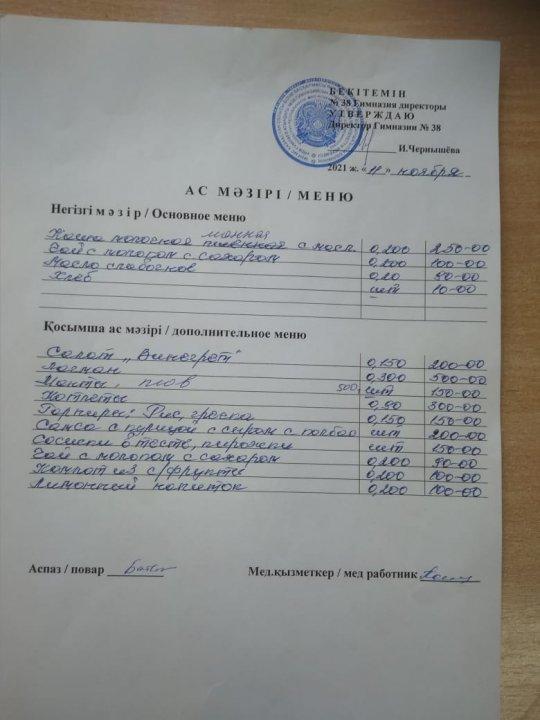 БЕКІТЕМІН
№ 38 Гимназия директоры
УТВЕРЖДАЮ
Директор Гимназии № 38
И.Чернышёва
2021 ж. «11» ноября
АС МӘЗІРІ / МЕНЮ
Негізгі мәзір / Основное меню
манная
Каша молочная пшенная с масл. 0,200 250-00
Чай с молоком с сахаром 0,200 100-00
Масло сладосл 0,20 80-00
Хлеб шт 10-00
Қосымша ас мәзірі / дополнительное меню
Салат "Винегрет" 0,150 200-00
Лагман 0,300 500-00
Манты, плов 500, шт 150-00
Котлеты 0,80 300-00
Гарниры: Рис, гречка 0,150 150-00
Самса с курицой с сыром с колбас шт 200-00
Сосиски в тесте, пирожки шт 150-00
Чай с молоком с сахаром 0,200 90-00
Компот из с/фрукты 0,200 100-00
Лимонный напиток 0,200 100-00
Аспаз / повар
Мед.қызметкер / мед работник